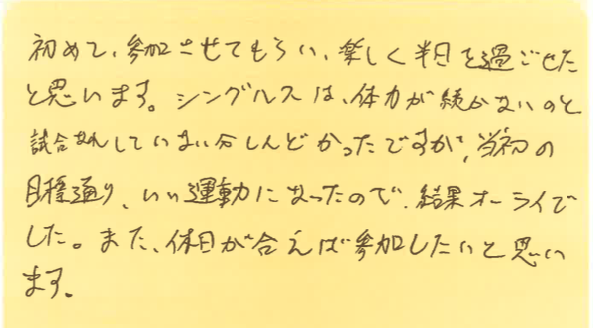 初めて、参加させてもらい、楽しく半日を過ごせた
と思います。シングルスは、体力が続かないのと
試合なれしていない分しんどかったですが、当初の
目標通り、いい運動になったので、結果オーライで
した。また、休日が合えば参加したいと思い
ます。